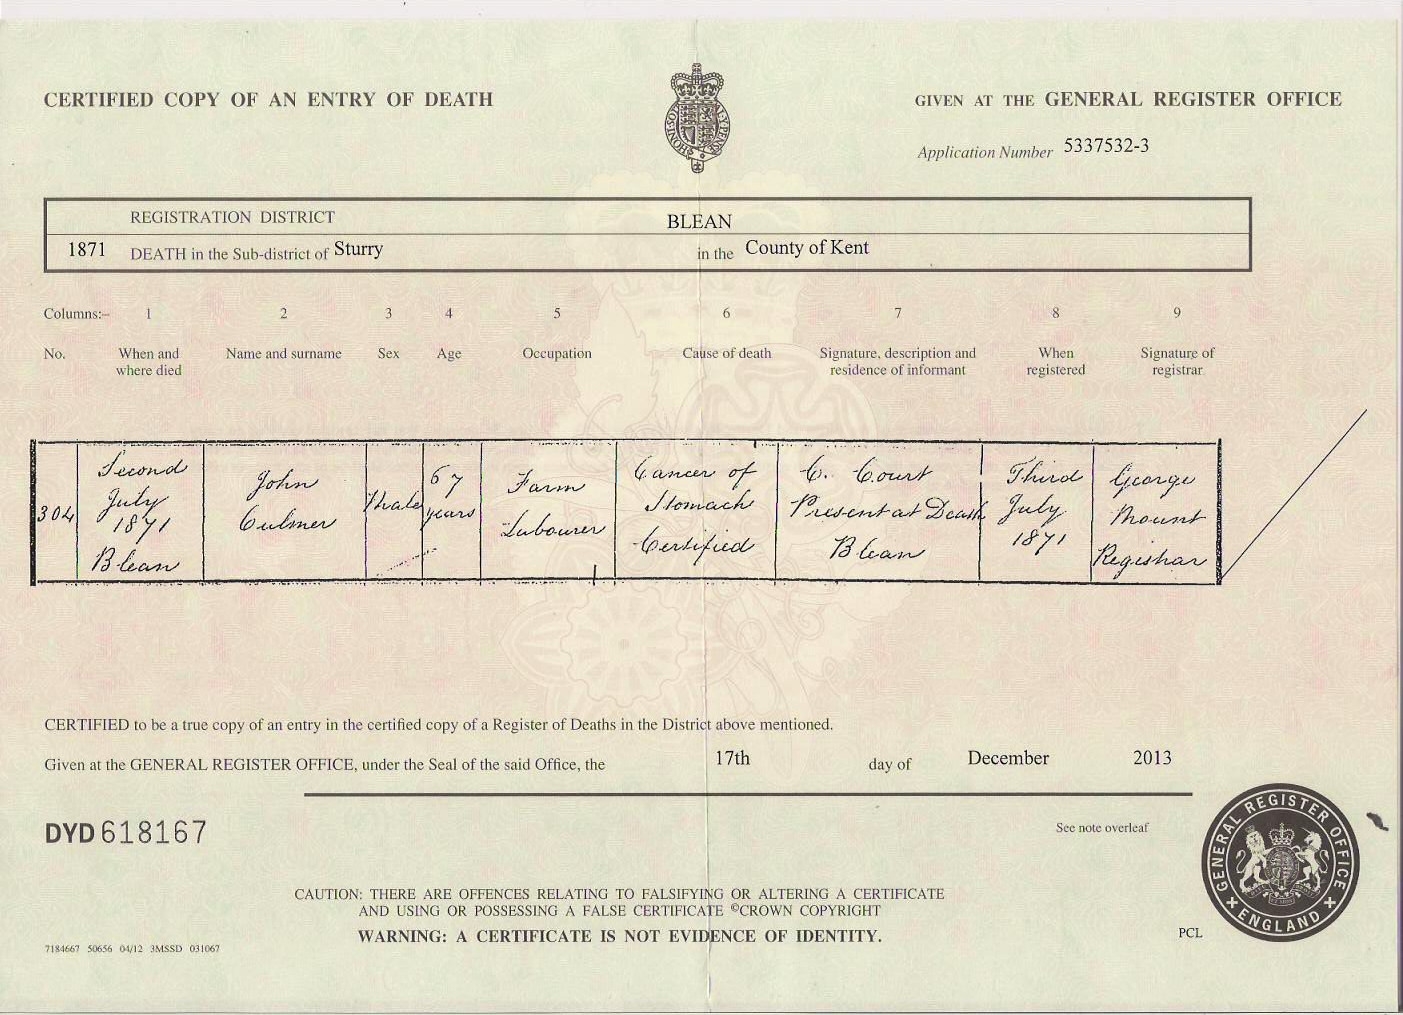 CERTIFIED COPY OF AN ENTRY OF DEATH
GIVEN AT THE GENERAL REGISTER OFFICE
Application Number 5337532-3
REGISTRATION DISTRICT BLEAN
1871 DEATH in the Sub-district of Sturry in the County of Kent
Columns:- 1 2 3 4 5 6 7 8 9
No. When and where died Name and surname Sex Age Occupation Cause of death Signature, description and residence of informant When registered Signature of registrar
304
Second
July
1871
Blean
John
Culmer
Male
67
years
Farm
Labourer
Cancer of
Stomach
Certified
C. Court
Present at Death
Blean
Third
July
1871
George
Mount
Registrar
CERTIFIED to be a true copy of an entry in the certified copy of a Register of Deaths in the District above mentioned.
Given at the GENERAL REGISTER OFFICE, under the Seal of the said Office, the 17th day of December 2013
DYD 618167
See note overleaf
GENERAL REGISTER OFFICE
ENGLAND
CAUTION: THERE ARE OFFENCES RELATING TO FALSIFYING OR ALTERING A CERTIFICATE
AND USING OR POSSESSING A FALSE CERTIFICATE ©CROWN COPYRIGHT
WARNING: A CERTIFICATE IS NOT EVIDENCE OF IDENTITY.
7184667 50656 04/12 3MSSD 031067
PCL